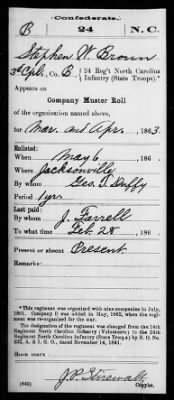 Confederate.
B 24 N.C.
Stephen W. Brown
3d Cpl, Co. B, 24 Reg't North Carolina
Infantry (State Troops).*
Appears on
Company Muster Roll
of the organization named above,
for Mar. and Apr., 1863.
Enlisted:
When May 6, 186 .
Where Jacksonville
By whom Geo. T. Duffy
Period 1 yr.
Last paid:
By whom J. Farrell
To what time Feb. 28, 186 .
Present or absent Present.
Remarks:
*This regiment was organized with nine companies in July,
1861. Company D was added in May, 1862, when the regi-
ment was re-organized for the war.
The designation of the regiment was changed from the 14th
Regiment North Carolina Infantry (Volunteers) to the 24th
Regiment North Carolina Infantry (State Troops) by S. O. No.
222, A. & I. G. O., dated November 14, 1861.
Book mark:
(642) Copyist.